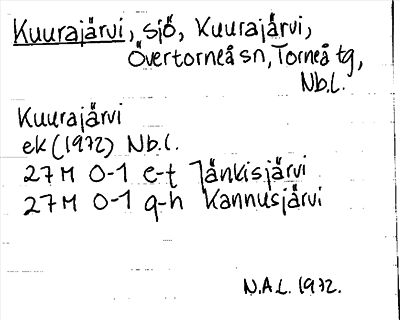 Kuurajärvi, sjö, Kuurajärvi,
Övertorneå sn, Torneå tg,
Nb.l.
Kuurajärvi
ek (1972) Nb.l.
27 M 0-1 e-f Jänkisjärvi
27 M 0-1 g-h Kannusjärvi
N.A.L. 1972.